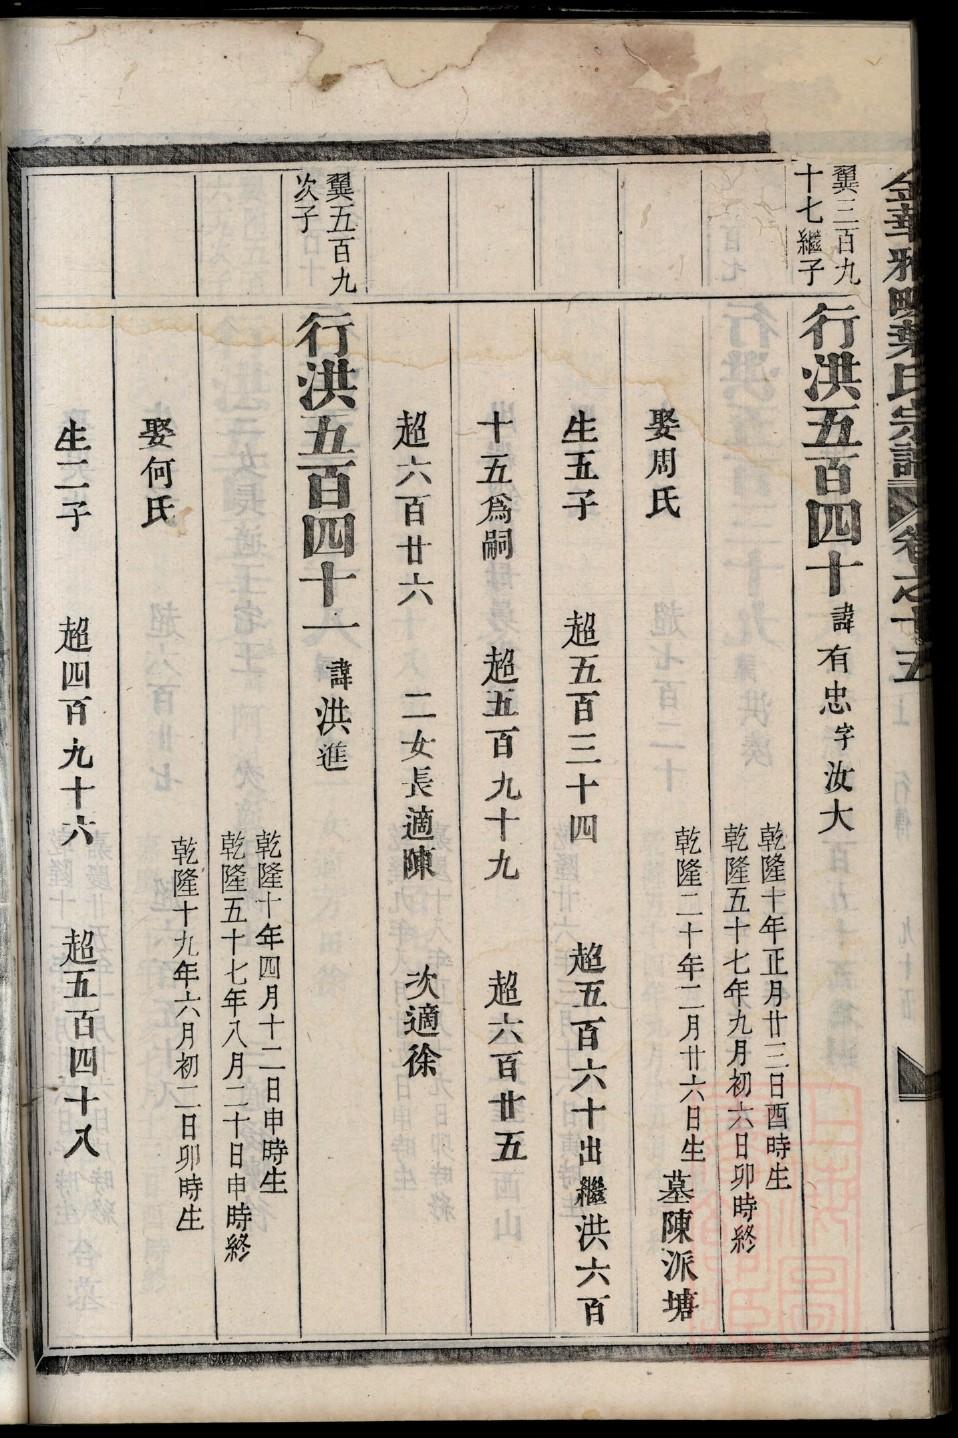 金華雅畈葉氏宗譜 卷之十五
翼三百九
十七繼子
行洪五百四十 諱有忠字汝大
乾隆十年正月廿三日酉時生
乾隆五十七年九月初六日卯時終
娶周氏 乾隆二十年二月廿六日生 墓陳派塘
生五子 超五百三十四 超五百六十出繼洪六百
十五爲嗣 超五百九十九 超六百廿五
超六百廿六 二女長適陳 次適徐
翼五百九
次子
行洪五百四十一 諱洪進
乾隆十年四月十二日申時生
乾隆五十七年八月二十日申時終
娶何氏 乾隆十九年六月初二日卯時生
生二子 超四百九十六 超五百四十八